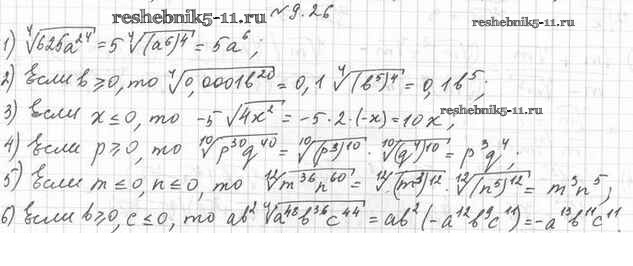 reshebnik5-11.ru №9.26 reshebnik5-11.ru
1) ⁴√(625a²⁴) = 5 ⁴√((a⁶)⁴) = 5a⁶;
2) Если b ≥ 0, то ⁴√(0,0001b²⁰) = 0,1 ⁴√((b⁵)⁴) = 0,1b⁵;
3) Если x ≤ 0, то -5 √(4x²) = -5·2·(-x) = 10x; reshebnik5-11.ru
4) Если p ≥ 0, то ¹⁰√(p³⁰q⁴⁰) = ¹⁰√((p³)¹⁰) · ¹⁰√((q⁴)¹⁰) = p³q⁴;
5) Если m ≤ 0, n ≤ 0, то ¹²√(m³⁶n⁶⁰) = ¹²√((m³)¹²) · ¹²√((n⁵)¹²) = m³n⁵;
6) Если b ≥ 0, c ≤ 0, то ab² ⁴√(a⁴⁸b³⁶c⁴⁴) = ab²(-a¹²b⁹c¹¹) = -a¹³b¹¹c¹¹.